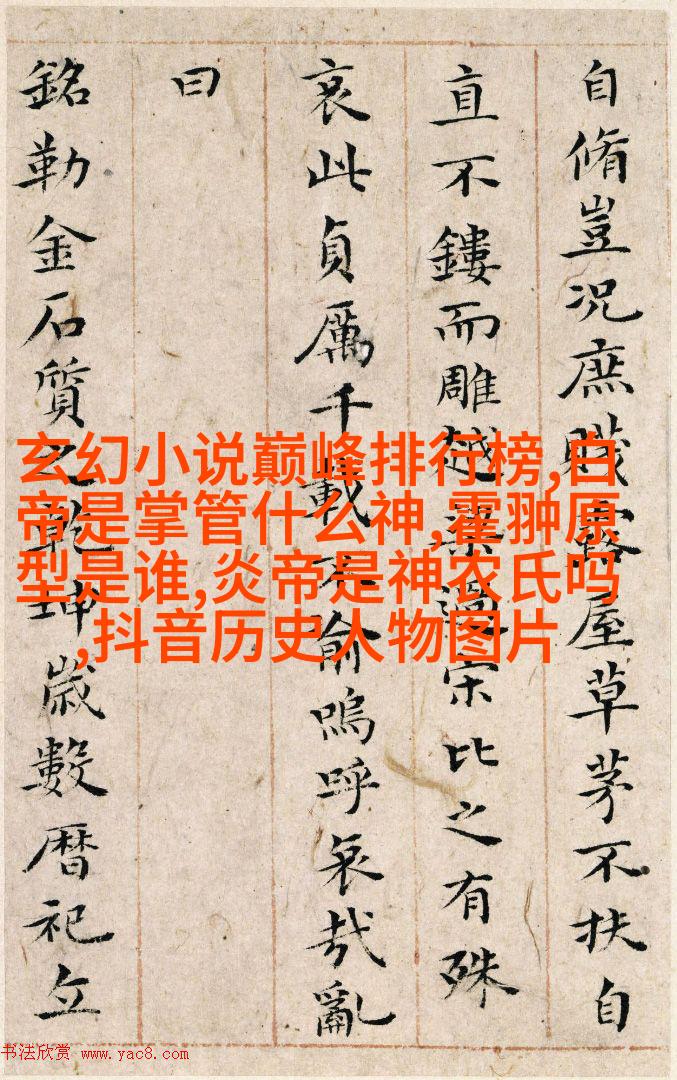 自脩豈況庶賤露屋草茅不扶自
直不鏤而雕越梁過宋比之有殊
哀此貞厲千載不渝嗚呼哀哉亂
曰
銘勒金石質之乾坤歲數暦祀丘
玄幻小说巅峰排行榜,白
帝是掌管什么神,霍翀原
型是谁,炎帝是神农氏吗
,抖音历史人物图片
书法欣赏 www.yac8.com